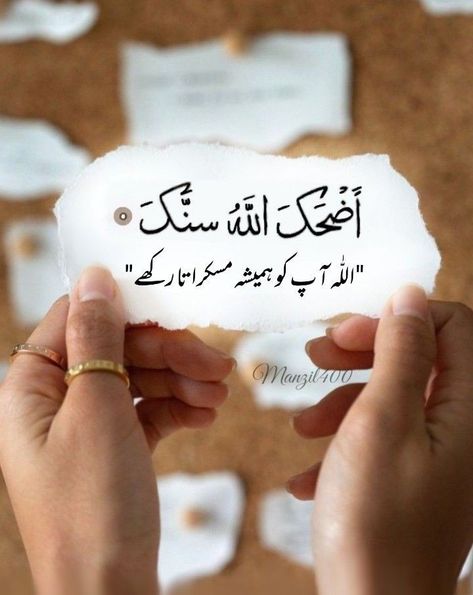 أَضْحَكَ اللَّهُ سنَّكَ
"اللہ آپ کو ہمیشہ مسکراتا رکھے"
Manzil400